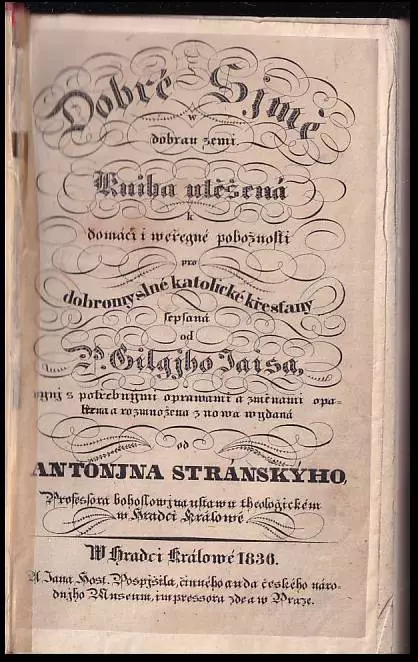 Dobré Sjmě
w
dobrau zemi
Kniha utěšená
k
domácj i weřegné pobožnosti
pro
dobromyslné katolické křesťany
sepsaná
od
P. Gilgjho Jaisa,
nynj s potřebnými oprawami a změnami opa-
třena a rozmnožena z nowa wydaná
od
ANTONJNA STRÁNSKÝHO,
Professora bohoslowj na ustawu theologickém
w Hradci Králowé
W Hradci Králowé 1836.
U Jana Host. Pospjšila, činného auda českého náro-
dnjho Museum, impressora zde a w Praze.